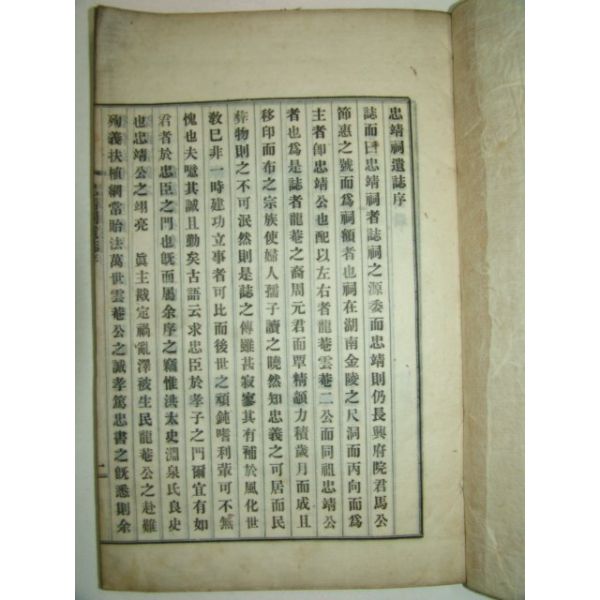 忠靖祠遺誌序
誌而曰忠靖祠者誌祠之源委而忠靖則仍長興府院君馬公
節惠之號而爲祠額者也祠在湖南金陵之尺洞而丙向而爲
主者卽忠靖公也配以左右者龍菴雲菴二公而同祖忠靖公
者也爲是誌者龍菴之裔周元君而覃精顓力積歲月而成且
移印而布之宗族使婦人孺子讀之曉然知忠義之可居而民
彝物則之不可泯然則是誌之傳雖甚寂寥其有補於風化世
敎已非一時建功立事者可比而後世之頑鈍嗜利輩可不無
愧也夫噫其誠且勤矣古語云求忠臣於孝子之門爾宜有如
君者於忠臣之門也旣而屬余序之竊惟洪太史淵泉氏良史
也忠靖公之翊亮 眞主戡定禍亂澤被生民龍菴公之赴難
殉義扶植綱常貽法萬世雲菴公之誠孝篤忠書之旣悉則余
一